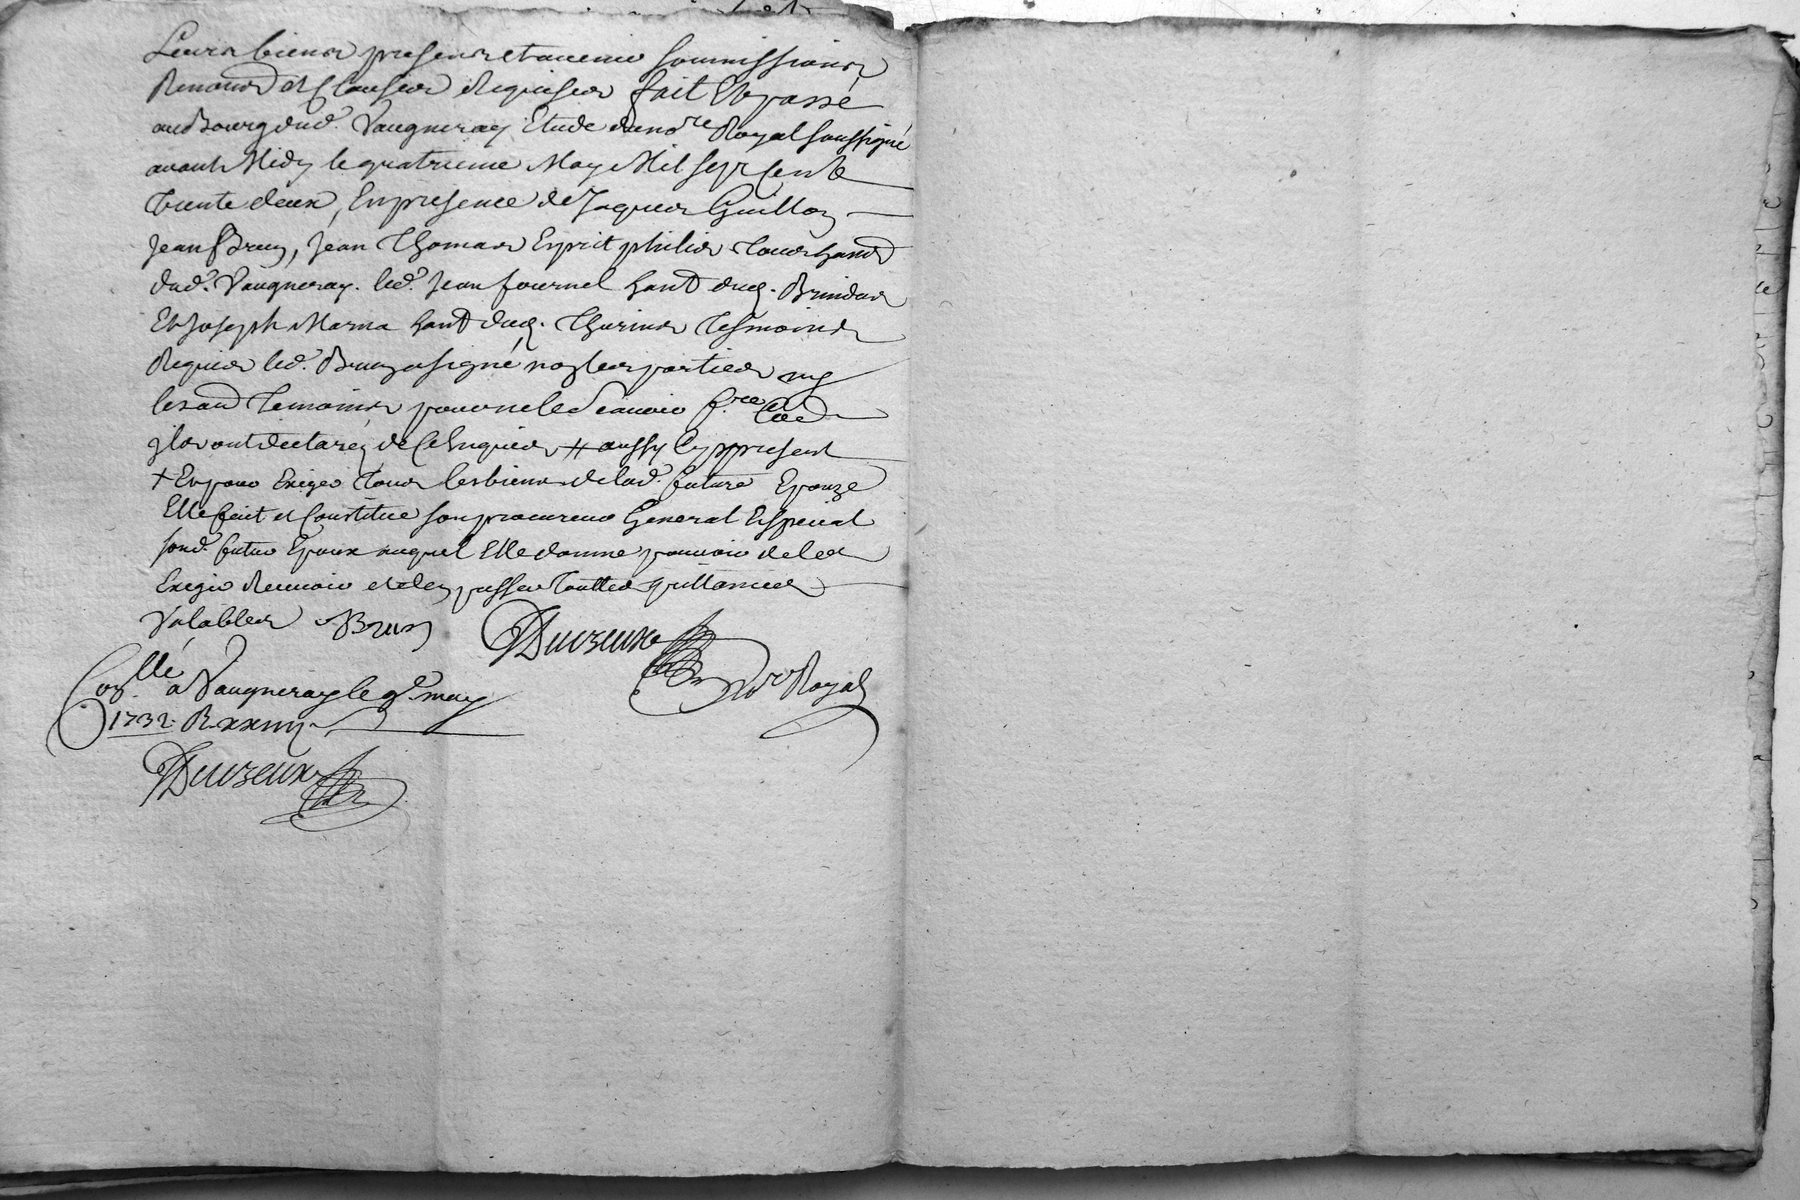 Leurs biens presens et avenir soumissions
Renond et Clauses Requises fait Et passé
au Bourg dud. Vaugneray Etude du no.re Royal soussigné
avant Midy le quatrieme May Mil sept Cents
trente deux, En presence de Jaques Guillon
Jean Brun, Jean Thomas Esprit philis Tous hants
dud. Vaugneray. led. Jean fournel hant duq. Brindas
Et Joseph Marna hant dud. Thurins Tesmoins
Requis led. Brun a signé non les parties ny
les aud Temoins pour ne le Scavoir
ils ont declaréz de Ce Enquis # aussy Cy present
+ Et pour Exiger Tous les biens de lad. future Epouze
Elle fait et Constitue son procureur General Especial
sond. futur Epoux auquel Elle donne pouvoir de les
Exigir Recevoir et d'en passer touttes quittances
Valables Brun Duvzeux
No.re Royal
Con.llé à Vaugneray le 9e may
1732. R
Duvzeux